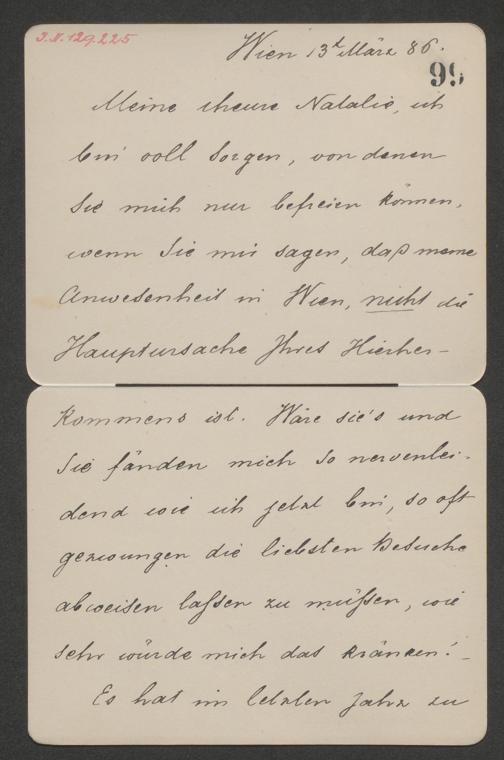 I.N. 129.225
Wien 13t März 86.
99
Meine theure Natalie, ich
bin voll Sorgen, von denen
Sie mich nur befreien können,
wenn Sie mir sagen, daß meine
Anwesenheit in Wien, nicht die
Hauptursache Ihres Hierher-
kommens ist. Wäre sie's und
Sie fänden mich so nervenlei-
dend wie ich jetzt bin, so oft
gezwungen die liebsten Besuche
abweisen laßen zu müßen, wie
sehr würde mich das kränken! –
Es hat im letzten Jahr zu